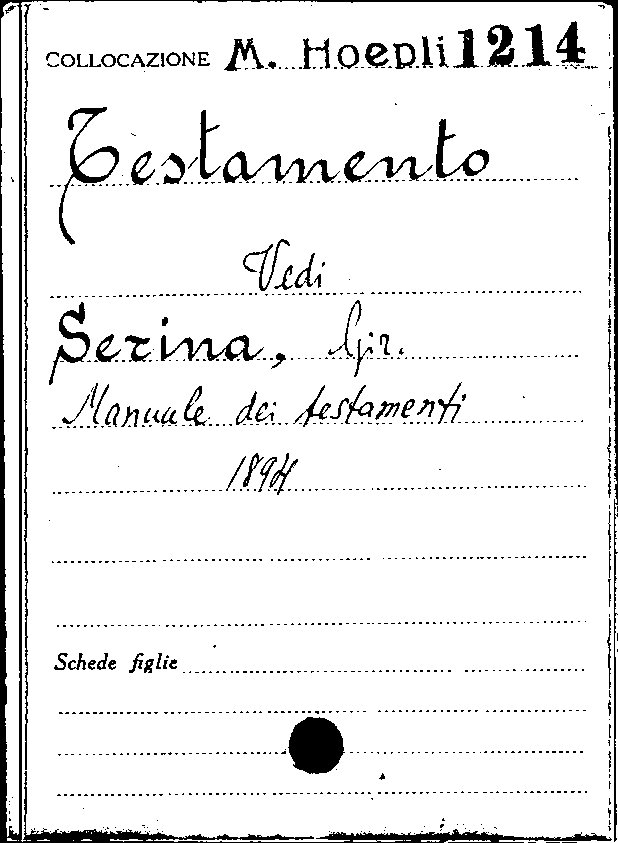 COLLOCAZIONE M. Hoepli 1214
Testamento
Vedi
Serina, Gir.
Manuale dei testamenti
1894
Schede figlie